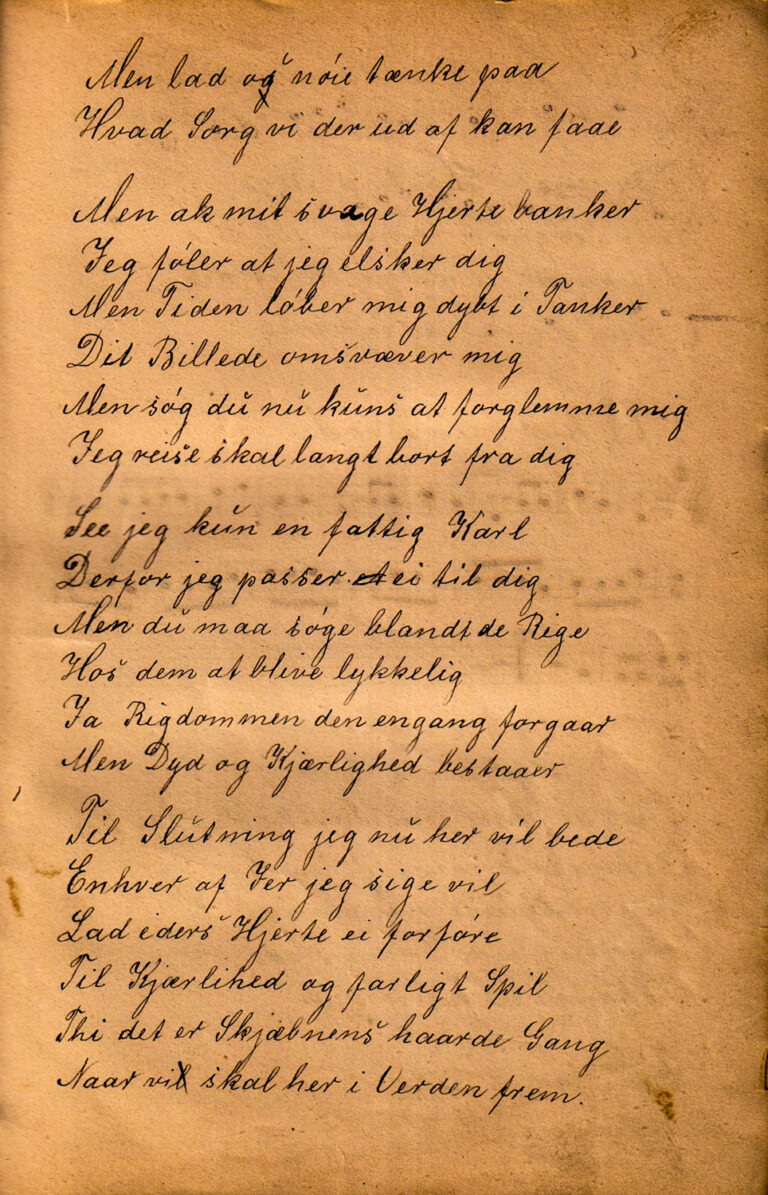 Men lad os nóie tænke paa
Hvad Sorg vi der ud af kan faae
Men ak mit svage Hjerte banker
Jeg fóler at jeg elsker dig
Men Tiden lóber mig dybt i Tanker
Dit Billede omsvæver mig
Men sóg du nu kuns at forglemme mig
Jeg reise skal langt bort fra dig
See jeg kun en fattig Karl
Derfor jeg passer ei til dig
Men du maa sóge blandt de Rige
Hos dem at blive lykkelig
Ja Rigdommen den engang forgaar
Men Dyd og Kjærlighed bestaaer
Til Slutning jeg nu her vil bede
Enhver af Jer jeg sige vil
Lad eders Hjerte ei forfóre
Til Kjærlihed og farligt Spil
Thi det er Skjæbnens haarde Gang
Naar vi skal her i Verden frem.